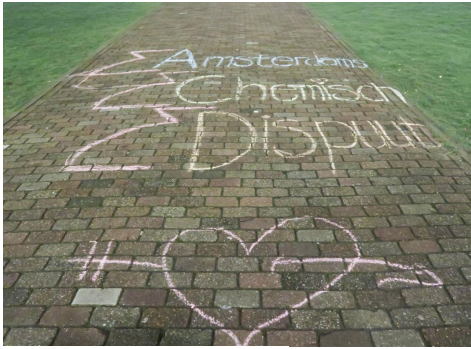 Amsterdams
Chemisch
Dispuut